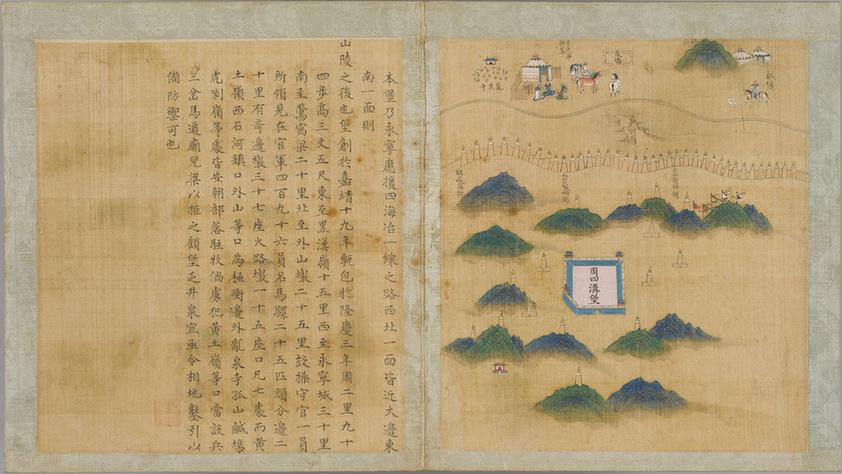 本堡乃永寧應援四海冶一線之路西北一面皆近大邊東
南一面則
山陵之後也堡創於嘉靖十九年甎包於隆慶三年周二里九十
四步高三丈五尺東至黑漢嶺十五里西至永寧城三十里
南至鶯窩梁二十里北至外山墩二十五里設操守官一員
所領見在官軍四百九十六員名馬騾二十五匹頭分邊二
十里有奇邊墩三十七座火路墩一十五座口凡七處而黃
土嶺西石河鎮口外山等口為極衝邊外亂泉寺孤山鹹場
虎剌嶺等處皆安朝部落駐牧倘虜犯黃土嶺等口當設兵
三岔馬道廟兒梁以拒之顧堡乏井泉宜亟令相地鑿引以
備防禦可也
周四溝堡
亂泉寺